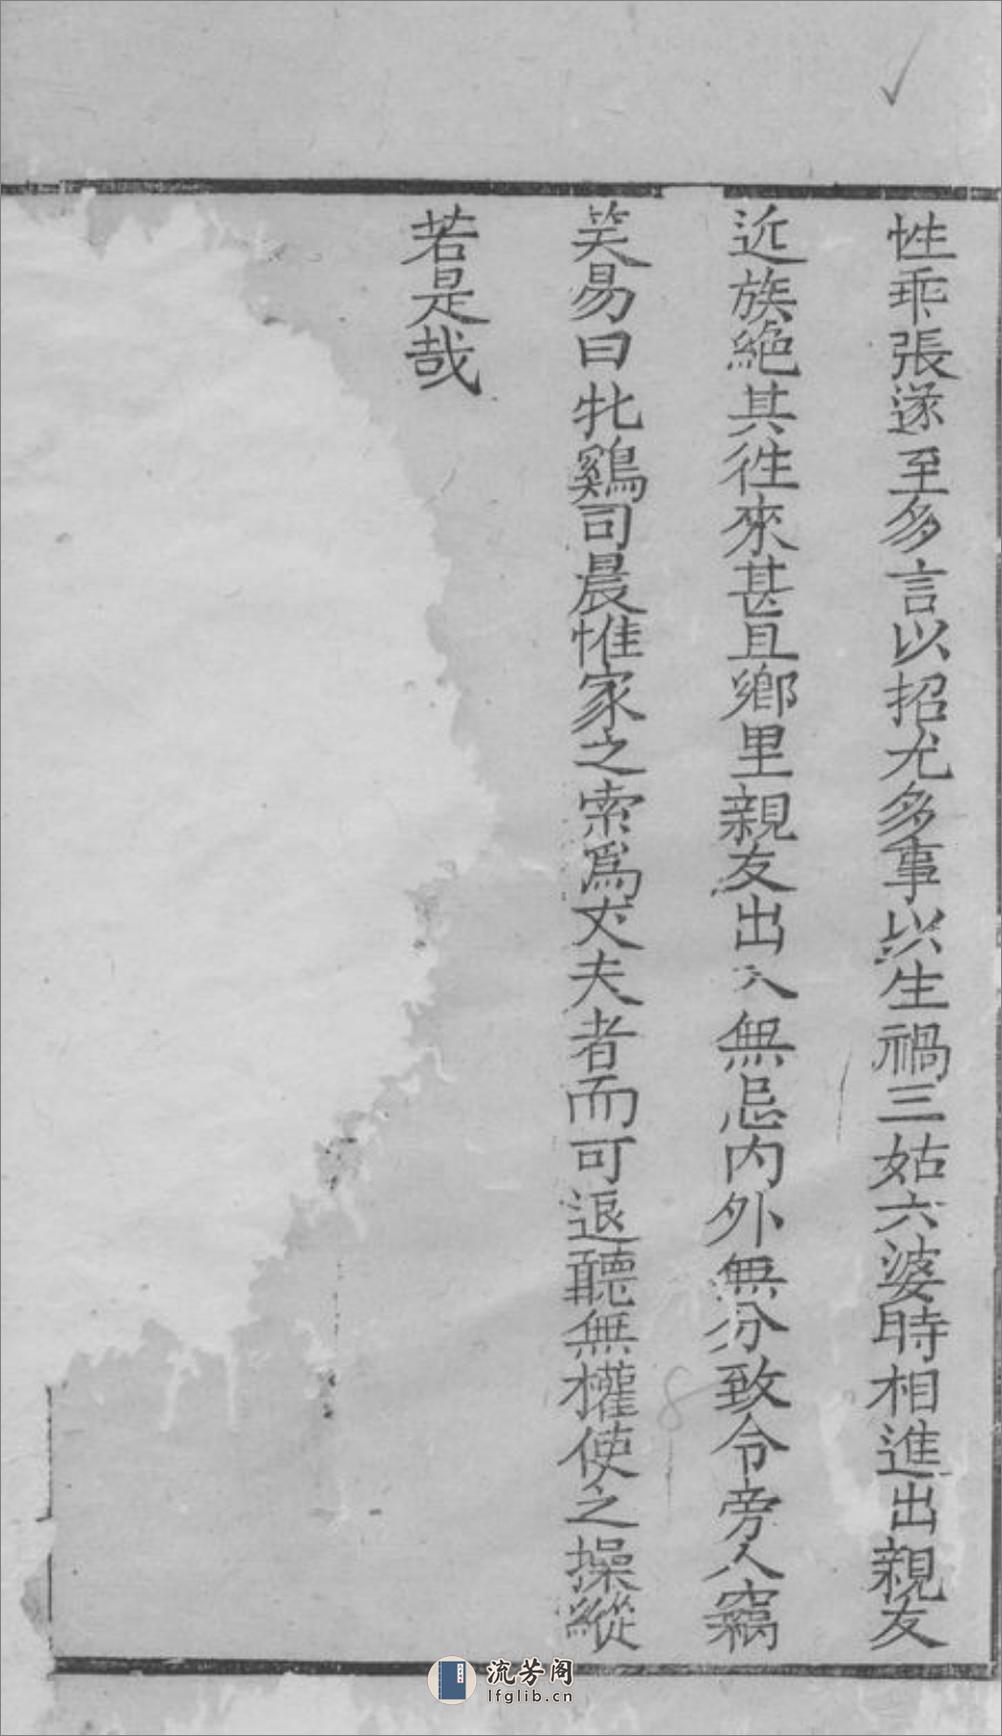 性乖張遂至多言以招尤多事以生禍三姑六婆時相進出親友
近族絕其往來甚且鄉里親友出入無忌內外無分致令旁人竊
笑易曰牝鷄司晨惟家之索爲丈夫者而可退聽無權使之操縱
若是哉
8
流芳阁
lfglib.cn